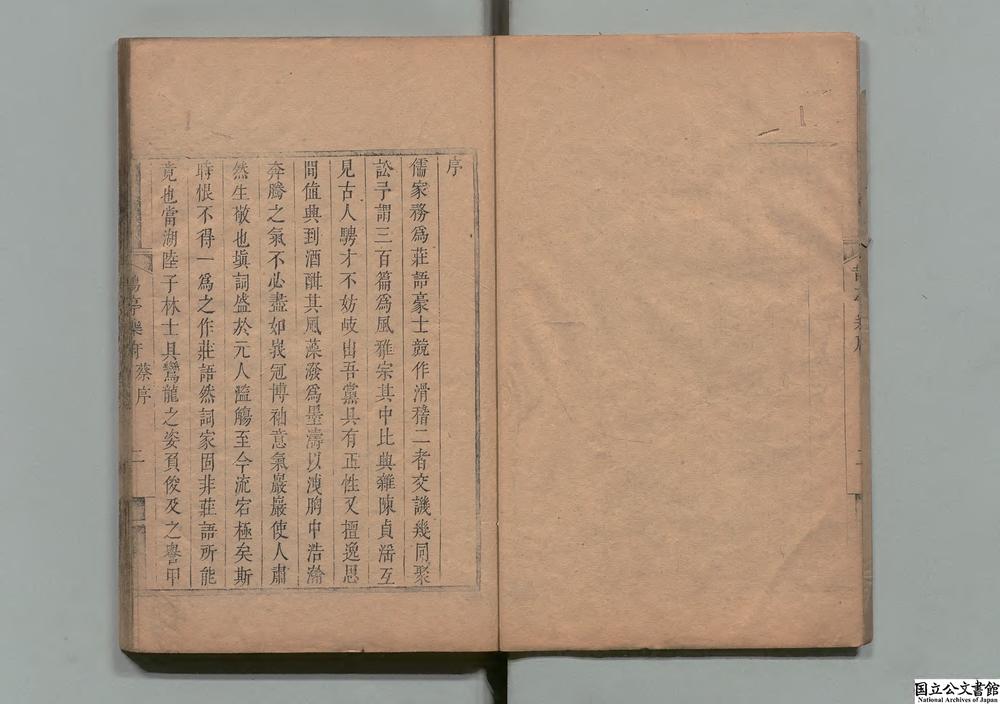 序
儒家務爲莊語豪士競作滑稽二者交譏幾同聚
訟予謂三百篇爲風雅宗其中比興雜陳貞淫互
見古人騁才不妨岐出吾黨具有正性又擅逸思
間值興到酒酣其風藻潑爲墨濤以洩胸中浩瀚
奔騰之氣不必盡如峩冠博袖意氣巖巖使人肅
然生敬也塡詞盛於元人濫觴至今流宕極矣斯
時恨不得一爲之作莊語然詞家固非莊語所能
竟也當湖陸子林士具鸞龍之姿負俊及之譽甲
亭樂府 蔡序
二
国立公文書館
National Archives of Japan